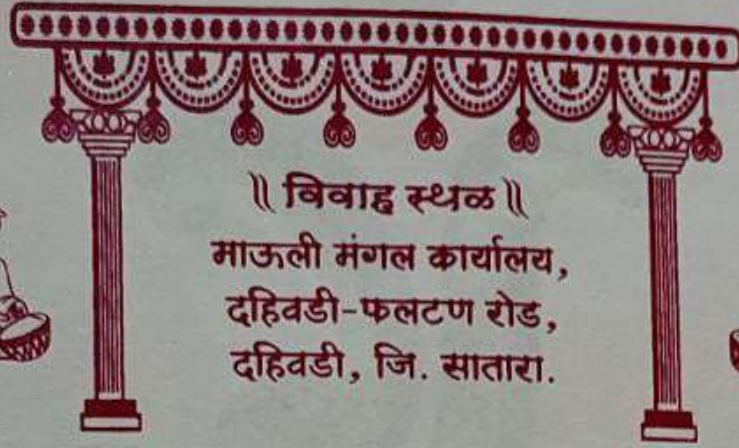 ॥ विवाह स्थळ ॥
माऊली मंगल कार्यालय,
दहिवडी-फलटण रोड,
दहिवडी, जि. सातारा.